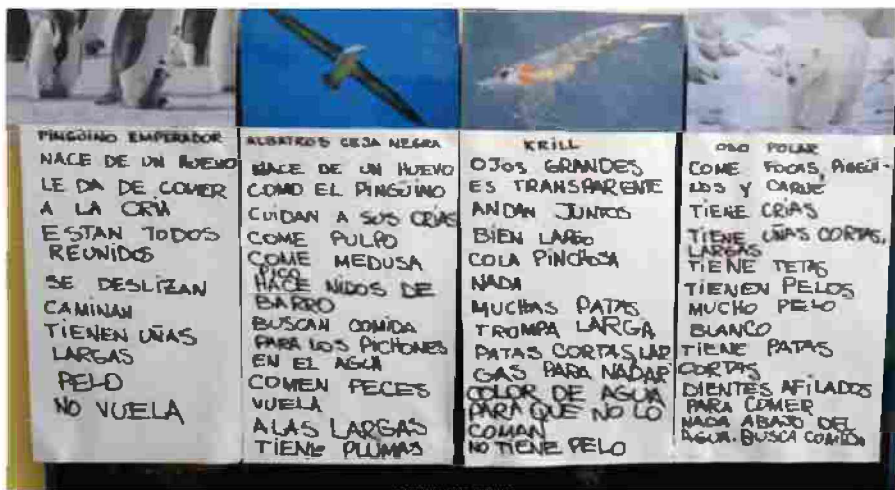 PINGÜINO EMPERADOR
NACE DE UN HUEVO
LE DA DE COMER
A LA CRIA
ESTAN TODOS
REUNIDOS
SE DESLIZAN
CAMINAN
TIENEN UÑAS
LARGAS
PELO
NO VUELA
ALBATROS CEJA NEGRA
NACE DE UN HUEVO
COMO EL PINGÜINO
CUIDAN A SUS CRIAS
COME PULPO
COME MEDUSA
PICO
HACE NIDOS DE
BARRO
BUSCAN COMIDA
PARA LOS PICHONES
EN EL AGUA
COMEN PECES
VUELA
ALAS LARGAS
TIENE PLUMAS
KRILL
OJOS GRANDES
ES TRANSPARENTE
ANDAN JUNTOS
BIEN LARGO
COLA PINCHOSA
NADA
MUCHAS PATAS
TROMPA LARGA
PATAS CORTAS, LAR
GAS PARA NADAR
COLOR DE AGUA
PARA QUE NO LO
COMAN
NO TIENE PELO
OSO POLAR
COME FOCAS, PINGÜI-
NOS Y CARNE
TIENE CRÍAS
TIENE UÑAS CORTAS,
LARGAS
TIENE TETAS
TIENEN PELOS
MUCHO PELO
BLANCO
TIENE PATAS
CORTAS
DIENTES AFILADOS
PARA COMER
NADA ABAJO DEL
AGUA. BUSCA COMIDA